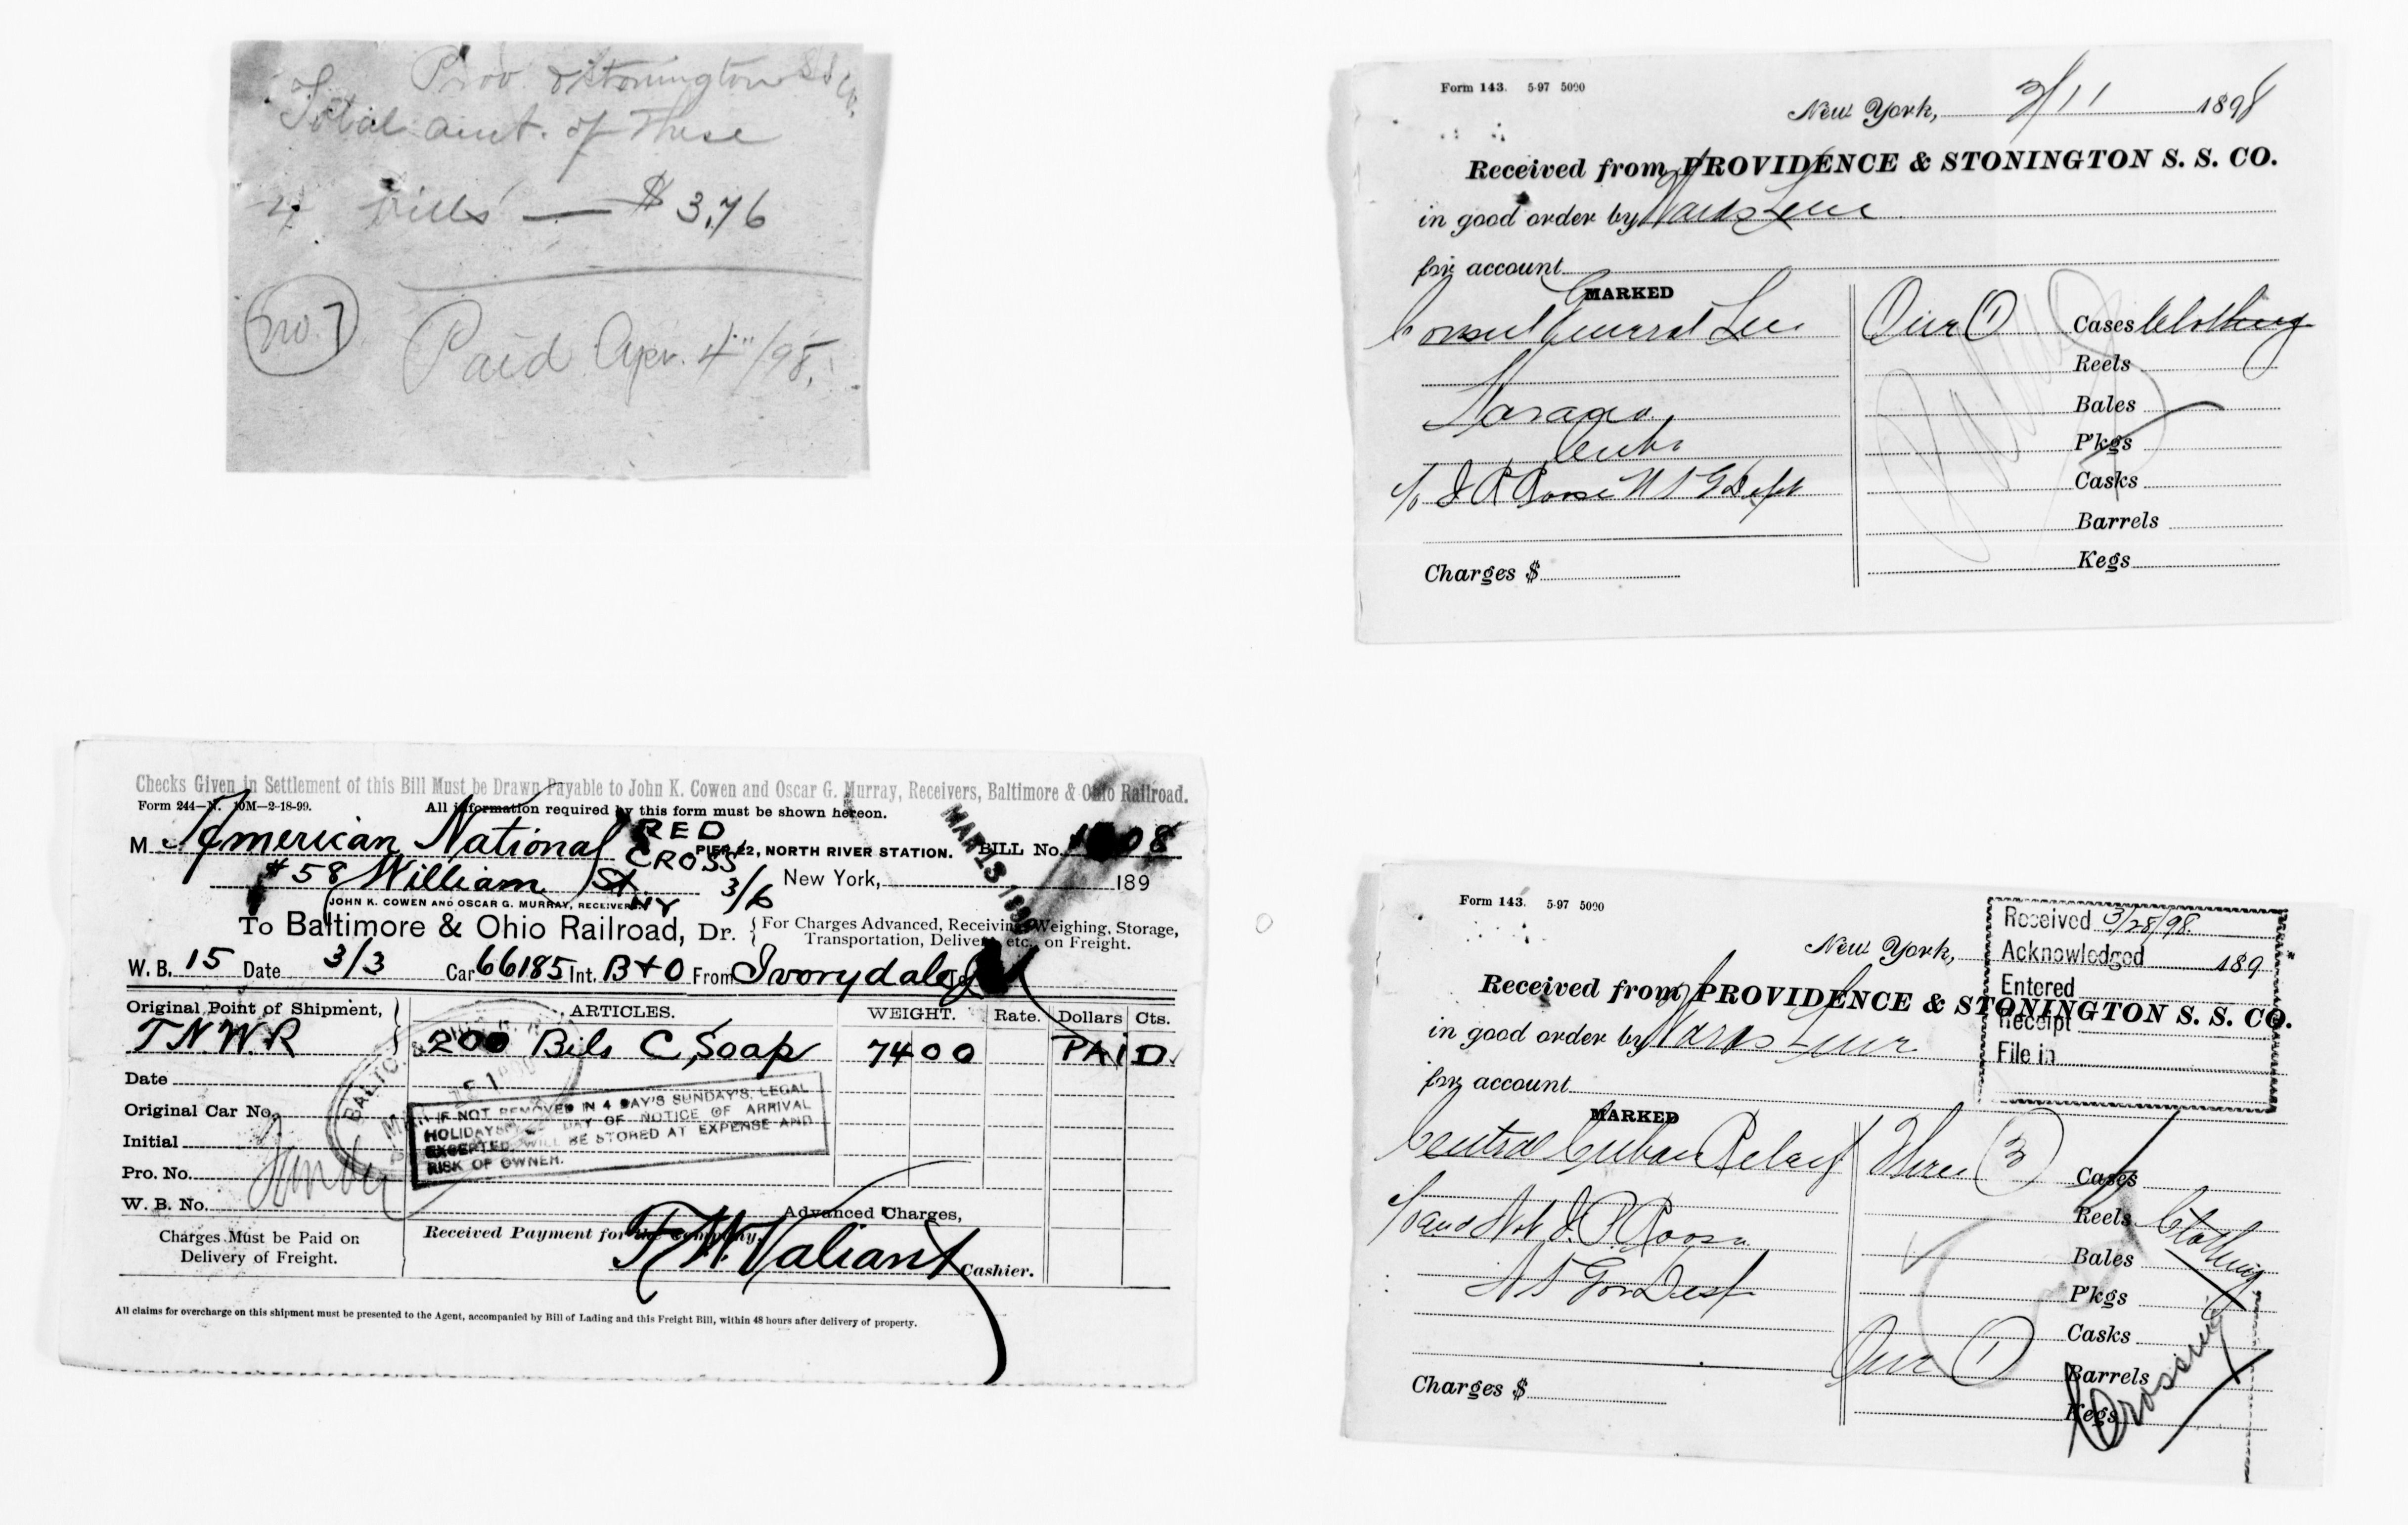 Prov & Stonington S S Co.
Total amt. of These
4 bills — $3.76
no. 7
Paid Apr. 4"/98.
Form 143. 5-97 5000
New York, 3/11 1898
Received from PROVIDENCE & STONINGTON S. S. CO.
in good order by Wards Line
for account
MARKED
Consul General Lee One (1) Cases Clothing
Reels
Havana Bales
Cuba P'kgs
c/o J P Roosa U S G Dept Casks
Barrels
Charges $ Kegs
Checks Given in Settlement of this Bill Must be Drawn Payable to John K. Cowen and Oscar G. Murray, Receivers, Baltimore & Ohio Railroad.
Form 244—N. 10M—2-18-99. All information required by this form must be shown hereon.
M American National RED CROSS PIER 22, NORTH RIVER STATION. BILL No. 08
#58 William St. NY 3/6 New York, 189
MAR 13
JOHN K. COWEN AND OSCAR G. MURRAY, RECEIVERS
To Baltimore & Ohio Railroad, Dr. For Charges Advanced, Receiving, Weighing, Storage,
Transportation, Delivery, etc., on Freight.
W. B. 15 Date 3/3 Car 66185 Int. B+O From Ivorydale
Original Point of Shipment, ARTICLES. WEIGHT. Rate. Dollars Cts.
T.N.W.R 200 Bxls C Soap 7400 PAID.
Date
Original Car No.
Initial
Pro. No.
W. B. No.
BALTO.
IF NOT REMOVED IN 4 DAY'S SUNDAY'S, LEGAL
HOLIDAYS DAY OF NOTICE OF ARRIVAL
EXCEPTED WILL BE STORED AT EXPENSE AND
RISK OF OWNER.
Advanced Charges,
Charges Must be Paid on
Delivery of Freight.
Received Payment for the Company,
F. W. Valiant Cashier.
All claims for overcharge on this shipment must be presented to the Agent, accompanied by Bill of Lading and this Freight Bill, within 48 hours after delivery of property.
Form 143. 5-97 5000
Received 3/28/98
Acknowledged
Entered
Receipt
File in
New York, 189
Received from PROVIDENCE & STONINGTON S. S. CO.
in good order by Wards Line
for account
MARKED
Central Cuban Relief Three (3) Cases
c/o J. P. Roosa Reels Clothing
Bales
U S Gov Dest P'kgs
Casks
One (1) Barrels
Charges $ Kegs